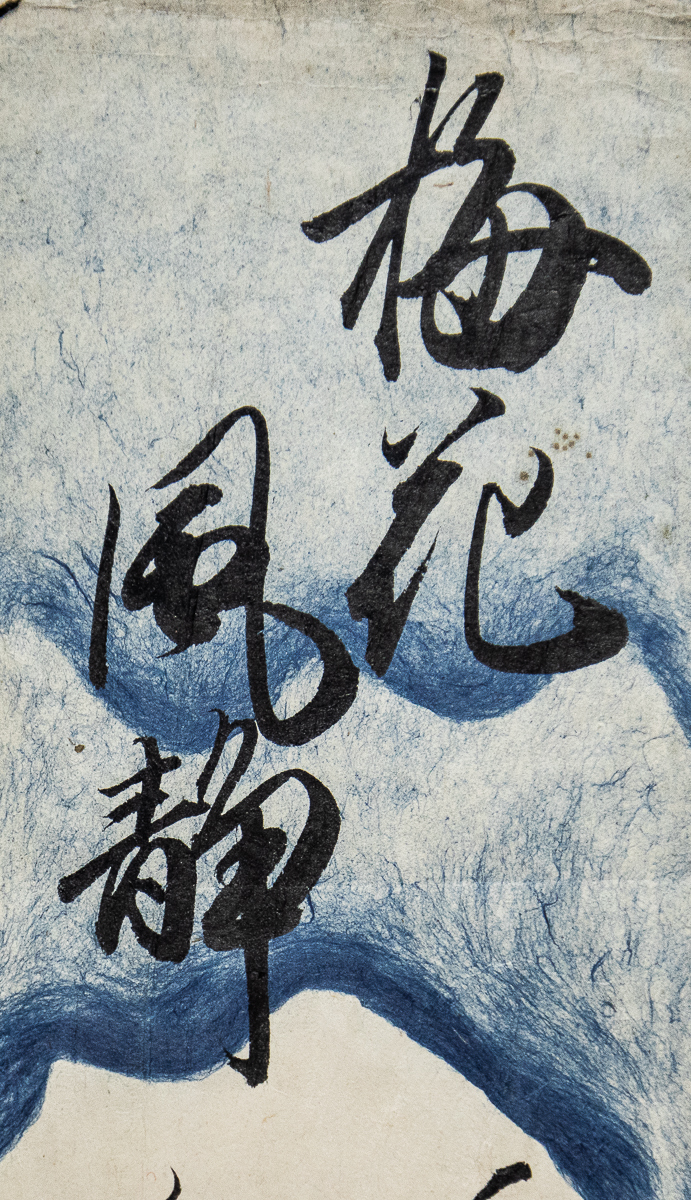 梅花
風静